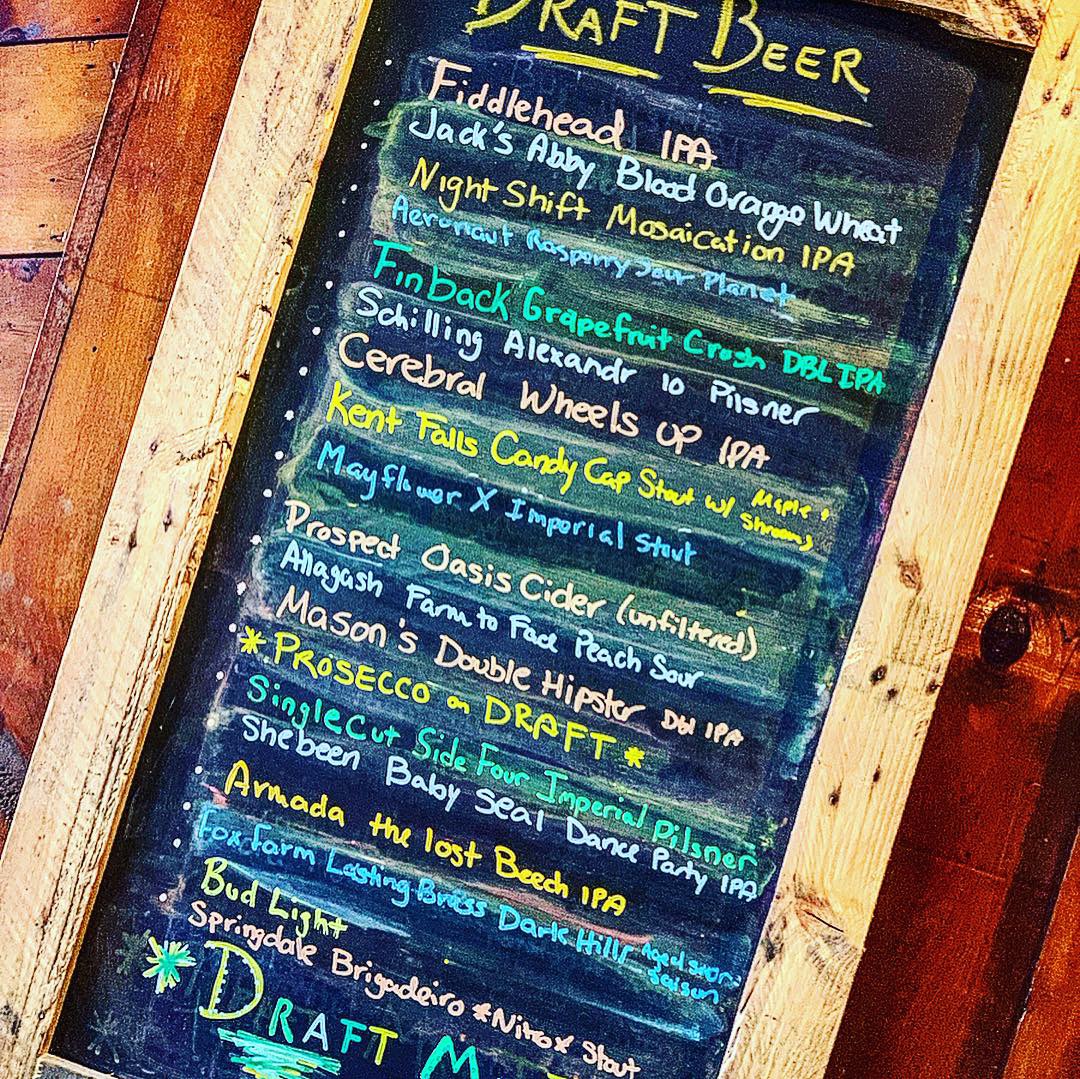 DRAFT BEER
Fiddlehead IPA
Jack's Abby Blood Orange Wheat
Night Shift Mosaication IPA
Aeronaut Raspberry Sour Planet
Finback Grapefruit Crush DBL IPA
Schilling Alexandr 10 Pilsner
Cerebral Wheels UP IPA
Kent Falls Candy Cap Stout w/ Maple + Shrooms
Mayflower X Imperial Stout
Prospect Oasis Cider (unfiltered)
Allagash Farm to Face Peach Sour
Mason's Double Hipster Dbl IPA
* PROSECCO on DRAFT *
SingleCut Side Four Imperial Pilsner
Shebeen Baby Seal Dance Party IPA
Armada the lost Beech IPA
Fox Farm Lasting Brass Dark Hills Aged Saison
Bud Light
Springdale Brigadeiro *Nitro* Stout
* DRAFT M